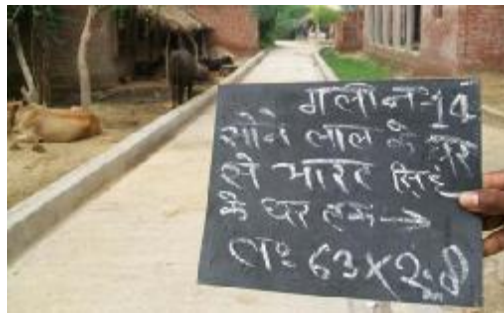 गली नं-14
सोने लाल के घर
से भारत सिंह
के घर तक →
ल० 63X2.8